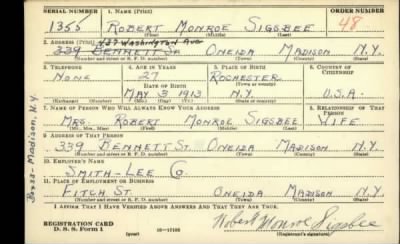 SERIAL NUMBER 1. NAME (Print) ORDER NUMBER
1355 ROBERT MONROE SIGSBEE 48
(First) (Middle) (Last)
2. ADDRESS (Print) 437 Washington Ave
339 BENNETT ST. ONEIDA MADISON N.Y.
(Number and street or R. F. D. number) (Town) (County) (State)
3. TELEPHONE 4. AGE IN YEARS 5. PLACE OF BIRTH 6. COUNTRY OF CITIZENSHIP
NONE 27 ROCHESTER
DATE OF BIRTH (Town or county)
MAY 3 1913 N.Y. U.S.A.
(Exchange) (Number) (Mo.) (Day) (Yr.) (State or country)
7. NAME OF PERSON WHO WILL ALWAYS KNOW YOUR ADDRESS 8. RELATIONSHIP OF THAT PERSON
MRS. ROBERT MONROE SIGSBEE WIFE
(Mr., Mrs., Miss) (First) (Middle) (Last)
9. ADDRESS OF THAT PERSON
339 BENNETT ST. ONEIDA MADISON N.Y.
(Number and street or R. F. D. number) (Town) (County) (State)
10. EMPLOYER'S NAME
SMITH-LEE CO.
11. PLACE OF EMPLOYMENT OR BUSINESS
FITCH ST. ONEIDA MADISON N.Y.
(Number and street or R. F. D. number) (Town) (County) (State)
I AFFIRM THAT I HAVE VERIFIED ABOVE ANSWERS AND THAT THEY ARE TRUE.
REGISTRATION CARD
D. S. S. Form 1 (over) 16—17105 Robert Monroe Sigsbee
(Registrant's signature)
Madison, N.Y.